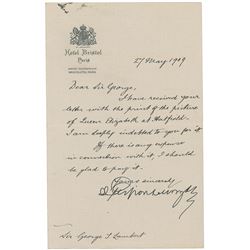 Hotel Bristol
Paris
27 May 1909
Dear Sir George,
I have received your
letter with the print of the picture
of Queen Elizabeth at Hatfield.
I am deeply indebted to you for it.
If there is any expense
in connection with it, I should
be glad to pay it.
Yours sincerely
Sir George T Lambert